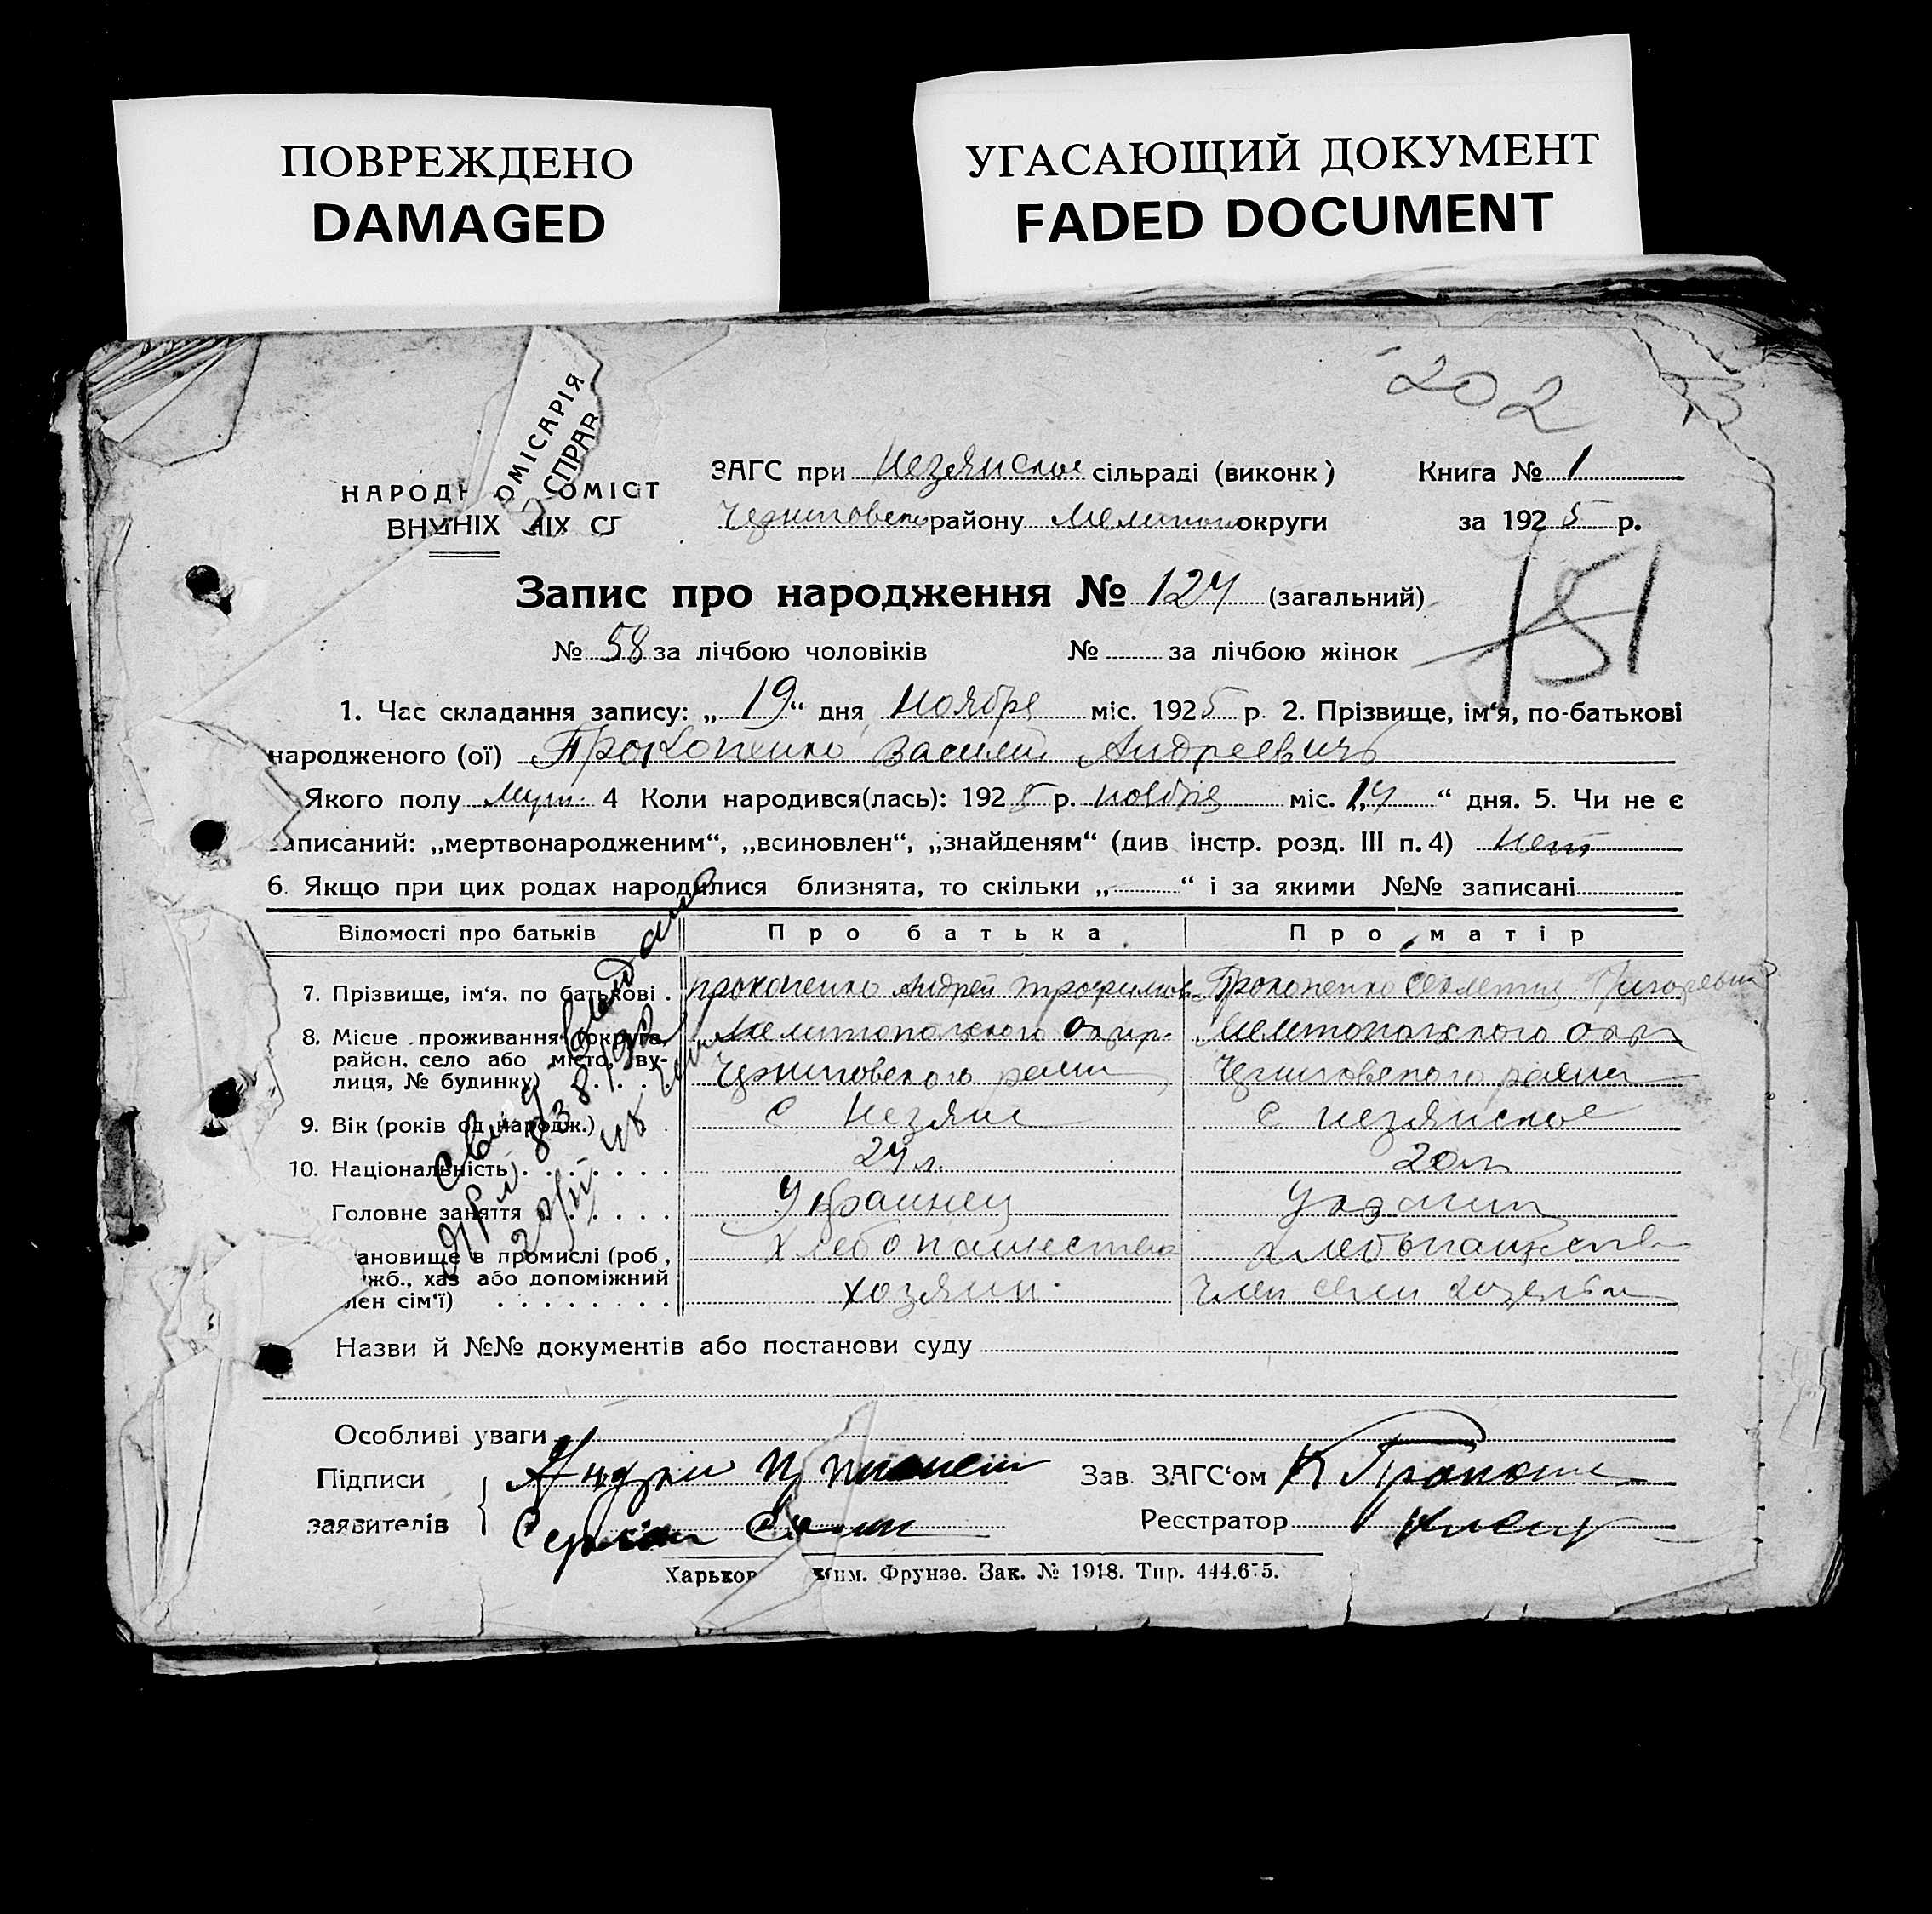 ПОВРЕЖДЕНО
DAMAGED
УГАСАЮЩИЙ ДОКУМЕНТ
FADED DOCUMENT
202
ОМІСАРІЯ
СПРАВ
НАРОДН ОМІСТ
ВН НІХ
ЗАГС при сільраді (виконк)
Книга № 1
району округи
за 1925 р.
Запис про народження № 124 (загальний)
151
№ 58 за лічбою чоловіків № за лічбою жінок
1. Час складання запису: „19“ дня Ноября міс. 1925 р. 2. Прізвище, ім‘я, по-батькові
народженого (ої) Прокопенко Василий Андреевичъ
Якого полу муж. 4 Коли народився(лась): 1925 р. ноября міс. 14 “ дня. 5. Чи не є
аписаний: „мертвонародженим“, „всиновлен“, „знайденям“ (див інстр. розд. III п. 4) Нет
6. Якщо при цих родах народилися близнята, то скільки „ “ і за якими №№ записані
Відомості про батьків Про батька Про матір
7. Прізвище, ім‘я, по батькові Прокопенко Андрей Трофимов Прокопенко
8. Місце проживання (округа, Мелитопольского Окр. Мелитопольского Окр
район, село або місто, ву-
лиця, № будинку) Черниговского район Черниговского района
9. Вік (років од народж.) с
10. Національність 24 л. 20 л
Головне заняття Украинец
ановище в промислі (роб, Хлебопашество Хлебопашество
жб., хаз або допоміжний
лен сім‘ї) хозяин член семьи
Назви й №№ документів або постанови суду
Особливі уваги
Підписи Андрей
Зав. ЗАГС‘ом К
заявителів
Реєстратор
Харьков им. Фрунзе. Зак. № 1918. Тир. 444.675.